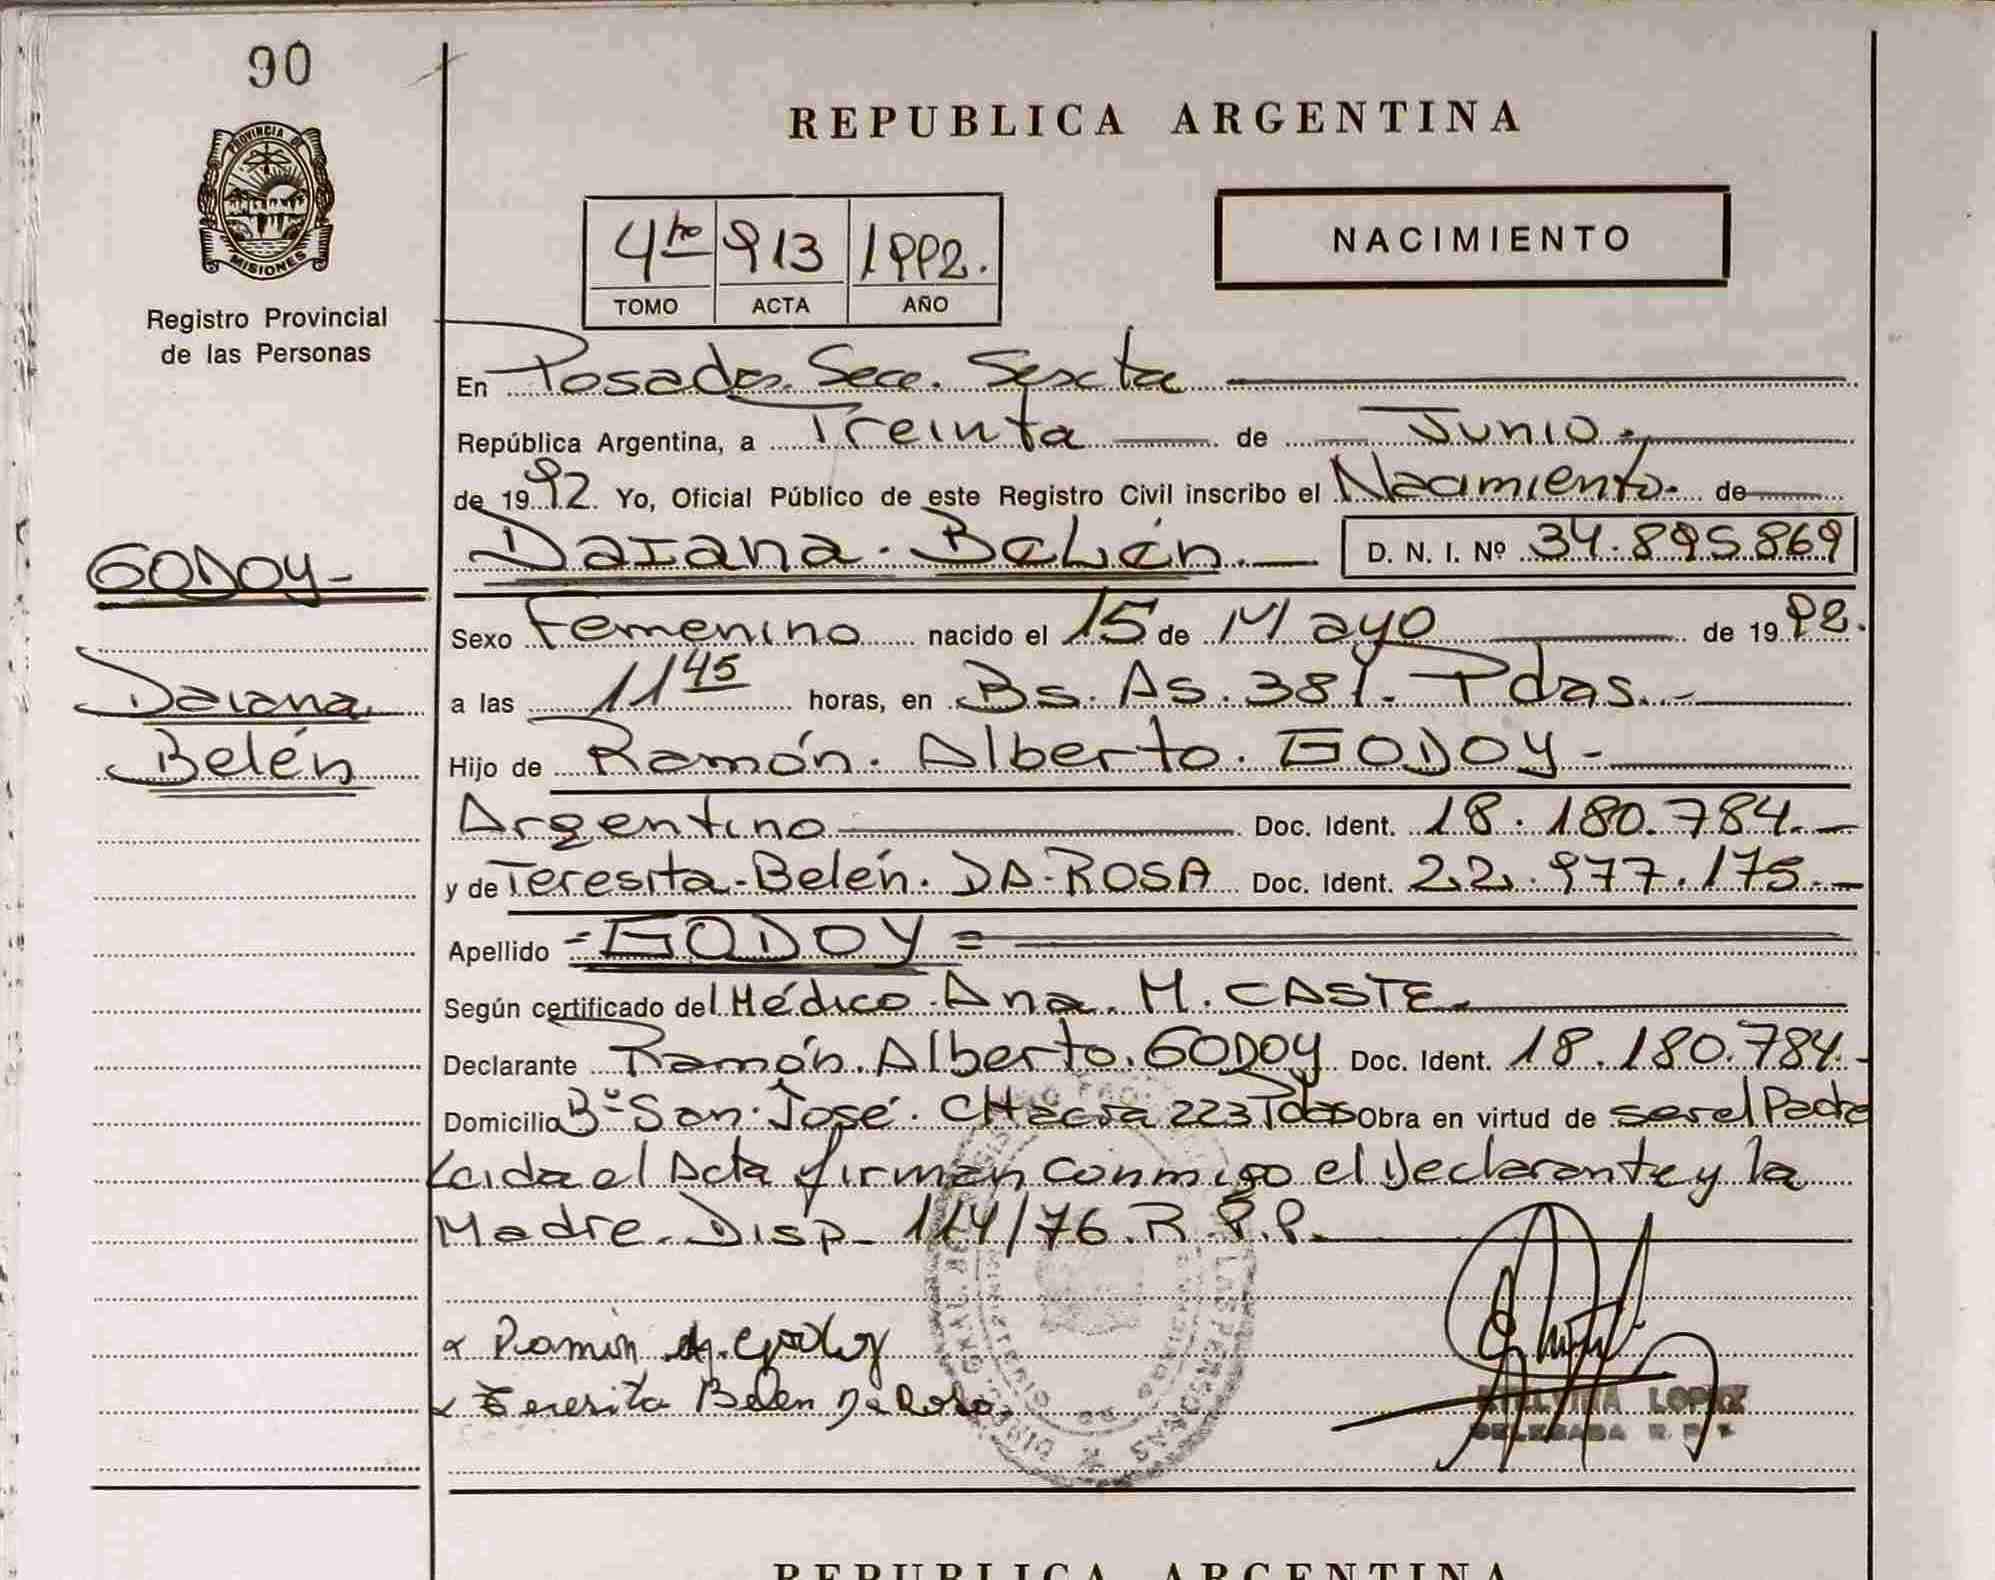 90
PROVINCIA DE
MISIONES
Registro Provincial
de las Personas
REPUBLICA ARGENTINA
4to 913 1992.
TOMO ACTA AÑO
NACIMIENTO
En Posadas. Secc. Sexta
República Argentina, a Treinta de Junio.
de 1992. Yo, Oficial Público de este Registro Civil inscribo el Nacimiento. de
Daiana. Belén. D. N. I. Nº 34.895.869
GODOY-
Daiana
Belén
Sexo Femenino nacido el 15 de Mayo de 1992.
a las 11 45 horas, en Bs. As. 381. Pdas.-
Hijo de Ramón. Alberto. GODOY-
Argentino Doc. Ident. 18.180.784.-
y de Teresita-Belén. DA-ROSA Doc. Ident. 22.977.175.-
Apellido =GODOY=
Según certificado del Médico. Ana. M. CASTE.
Declarante Ramón. Alberto. GODOY Doc. Ident. 18.180.784.-
Domicilio Bº San. José. CHacra 223 Pdas Obra en virtud de ser el Padre
Leida el Acta firman conmigo el Declarante y la
Madre. Disp- 114/76. R.P.P.
x Ramón A. Godoy
x Teresita Belen Da Rosa.
LOPEZ
DELEGADA R. P. P.
REPUBLICA ARGENTINA